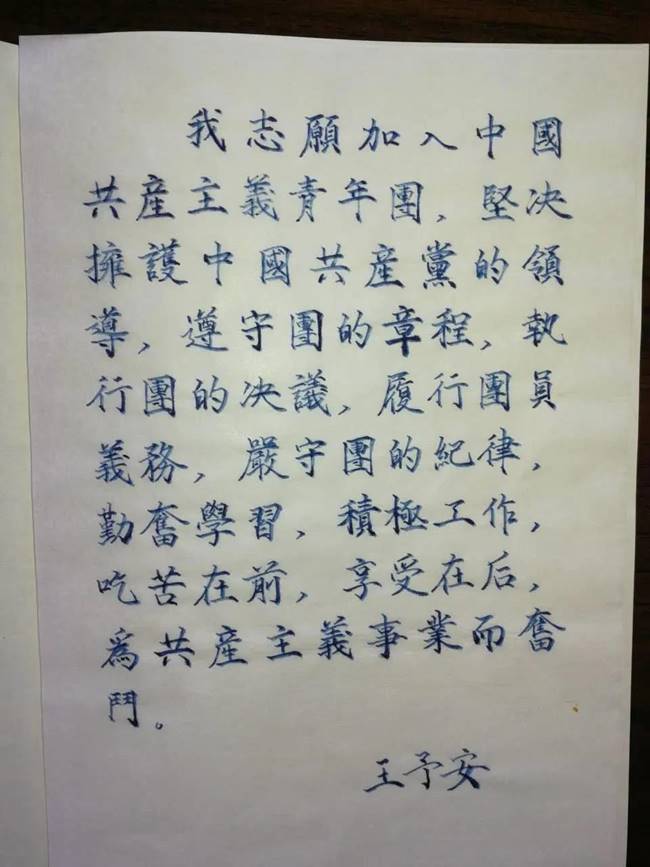 我志願加入中國
共産主義青年團，堅决
擁護中國共産黨的領
導，遵守團的章程，執
行團的决議，履行團員
義務，嚴守團的紀律，
勤奮學習，積極工作，
吃苦在前，享受在后，
爲共産主義事業而奮
鬥。
王予安